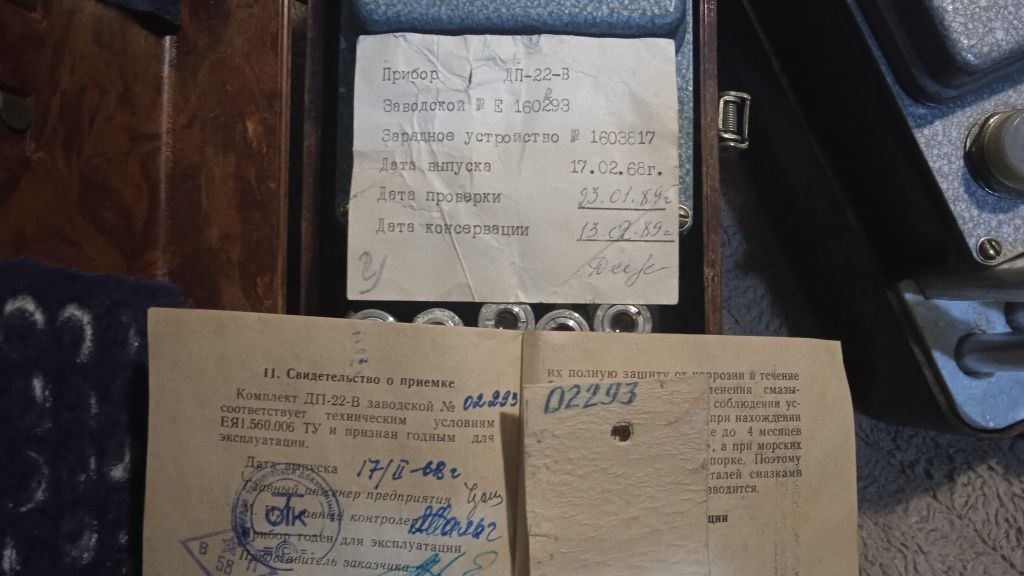 Прибор ДП-22-В
Заводской № Е 160293
Зарядное устройство № 1603817
Дата выпуска 17.02.68г.
Дата проверки 23.01.89г
Дата консервации 13.02.89г
11. Свидетельство о приемке
Комплект ДП-22-В заводской № 02293
соответствует техническим условиям
ЕЯ1.560.006 ТУ и признан годным для
эксплуатации.
Дата выпуска 17/II-68г
Главный инженер предприятия
контролер
ОТК
Прибор годен для эксплуатации
Представитель заказчика
В
58
их полную защиту от коррозии в течение
02293
менения смазы-
соблюдении ус-
при нахождении
до 4 месяцев
, а при морских
порке. Поэтому
талей смазками
зводится.
ции